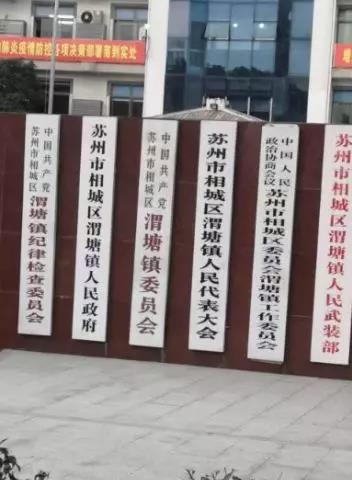 肺炎疫情防控各项决策部署落到实处
中国共产党
苏州市相城区
渭塘镇纪律检查委员会
苏州市相城区渭塘镇人民政府
中国共产党
苏州市相城区
渭塘镇委员会
苏州市相城区渭塘镇人民代表大会
中国人民
政治协商会议
苏州市相城区委员会渭塘镇工作委员会
苏州市相城区渭塘镇人民武装部